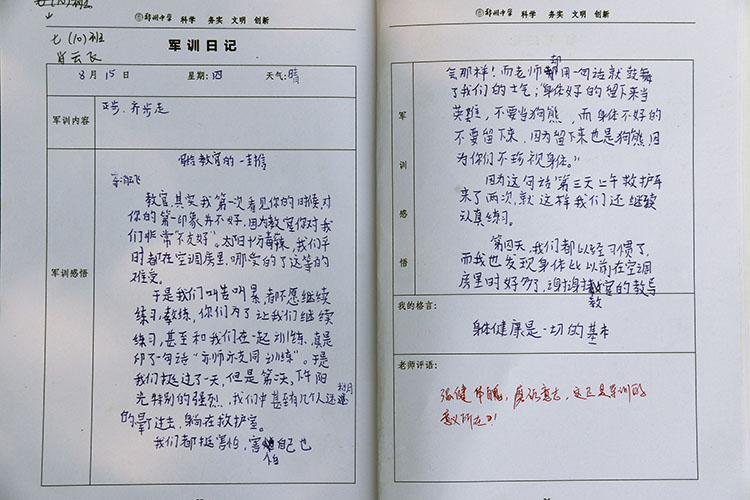 郑州中学 科学 务实 文明 创新
七(10)班
肖云飞
军训日记
8月15日 星期:四 天气:晴
军训内容
正步、齐步走
军训感悟
给教官的一封信
教官,其实我第一次看见你的时候对
你的第一印象并不好,因为教官你对我
们非常“不友好”。太阳十分毒辣,我们平
时都在空调房里,哪受的了这等的
难受。
于是我们叫苦叫累,都不愿继续
练习,教练,你们为了让我们继续
练习,甚至和我们在一起训练,真是
印了一句诗“亦师亦友同训练”。于是
我们挺过了一天,但是第二天,下午阳
光特别的强烈,我们中甚至有几个人还
的晕过去,躺在救护室。
我们都挺害怕,害怕自己也
郑州中学 科学 务实 文明 创新
军训感悟
会那样!而老师却用一句话就鼓舞
了我们的士气;“身体好的留下来当
英雄,不要当狗熊,而身体不好的
不要留下来,因为留下来也是狗熊,因
为你们不珍视身体。”
因为这句话第三天上午救护车
来了两次,就这样我们还继续
认真练习。
第四天,我们都以经习惯了,
而我也发现身体比以前在空调
房里时好多了,谢谢教官的教导
我的格言:
身体健康是一切的基本
老师评语:
强健体魄,磨砺意志,这正是军训的
意义所在!